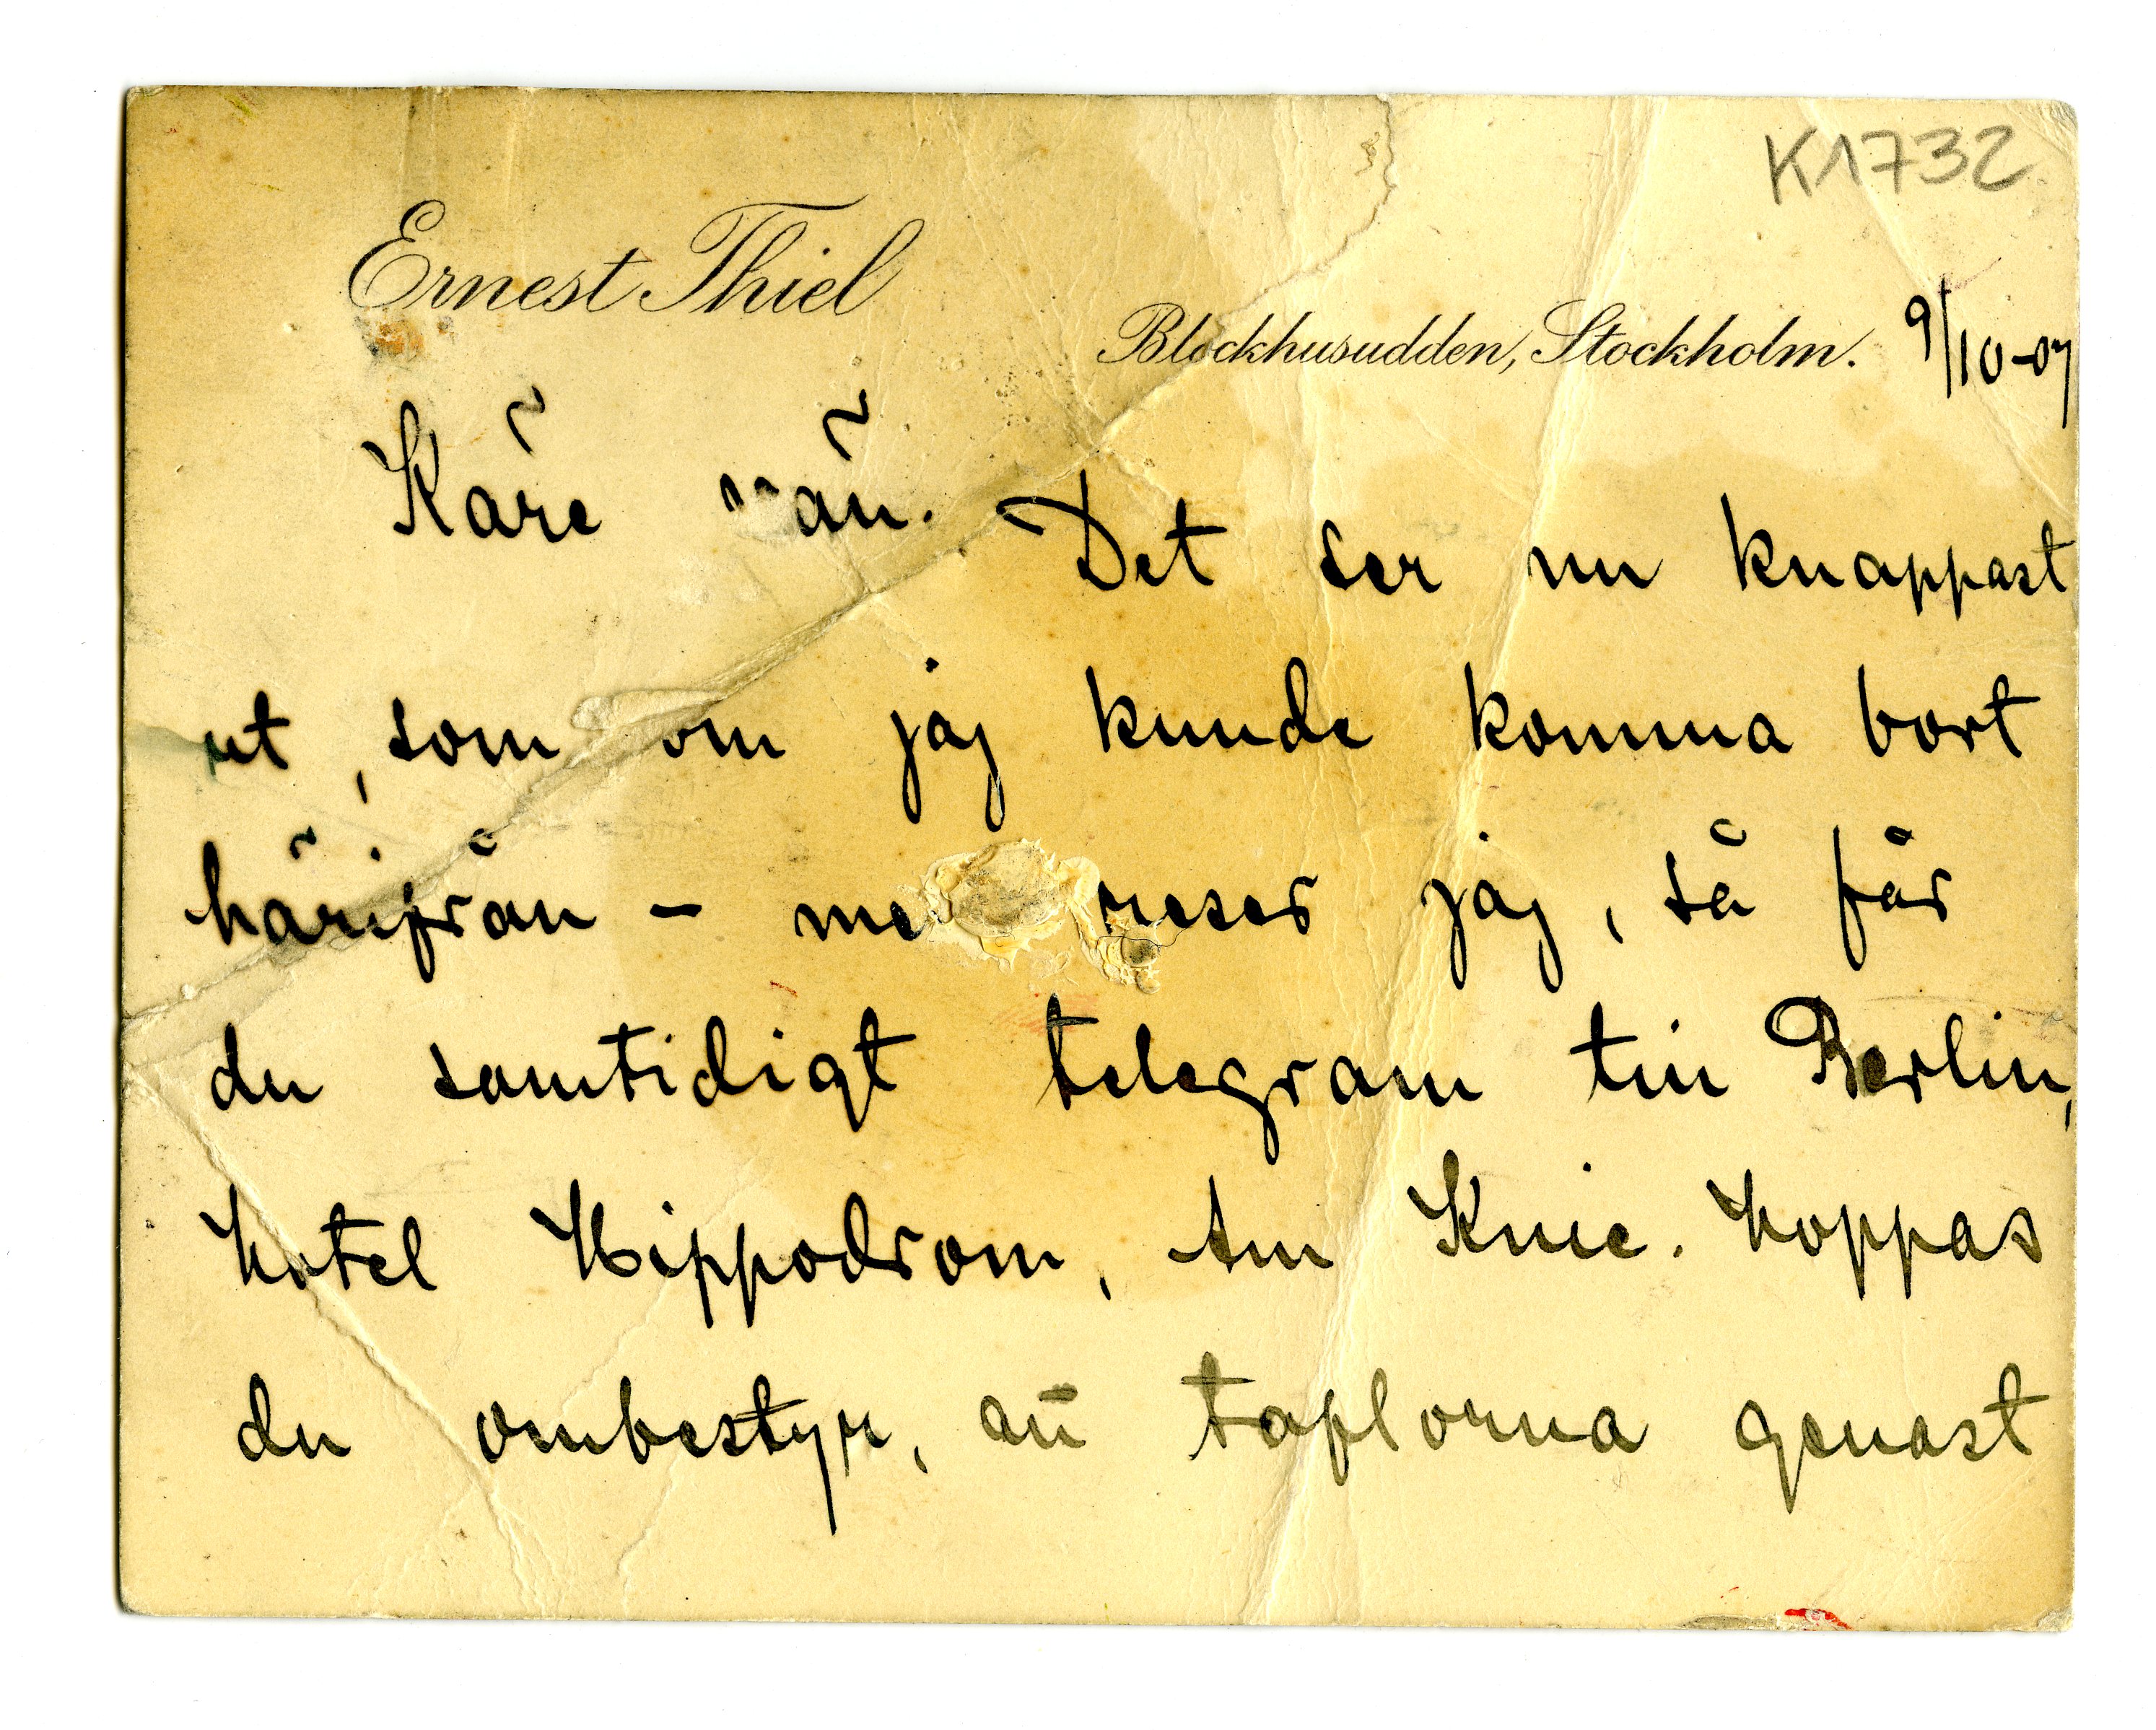 K1732
Ernest Thiel
Blockhusudden, Stockholm. 9/10-07
Käre vän. Det ser nu knappast
ut, som om jag kunde komma bort
härifrån – me reser jag, så får
du samtidigt telegram till Berlin,
hotel Hippodrom, Am Knie. Hoppas
du ombestyr, att taflorna genast